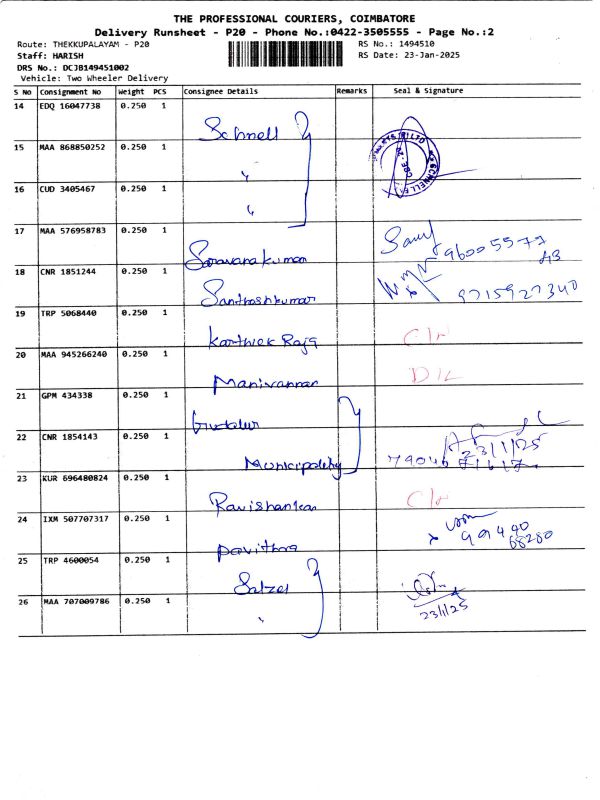 THE PROFESSIONAL COURIERS, COIMBATORE
Delivery Runsheet - P20 - Phone No.:0422-3505555 - Page No.:2
Route: THEKKUPALAYAM - P20 RS No.: 1494510
Staff: HARISH RS Date: 23-Jan-2025
DRS No.: DCJB149451002
Vehicle: Two Wheeler Delivery
S No Consignment No Weight PCS Consignee Details Remarks Seal & Signature
14 EDQ 16047738 0.250 1 Schnell
15 MAA 868850252 0.250 1 "
16 CUD 3405467 0.250 1 "
17 MAA 576958783 0.250 1 Saravanakumar
18 CNR 1851244 0.250 1 Santhoshkumar 9715927340
19 TRP 5068440 0.250 1 Karthick Raja
20 MAA 945266240 0.250 1 Manivannan D/L
21 GPM 434338 0.250 1 Gudalur
22 CNR 1854143 0.250 1 Municipality 23/1/25
23 KUR 696480824 0.250 1 Ravishankar
24 IXM 507707317 0.250 1 Pavithra 99440 68280
25 TRP 4600054 0.250 1 Salzer
26 MAA 707009786 0.250 1 " 23/1/25